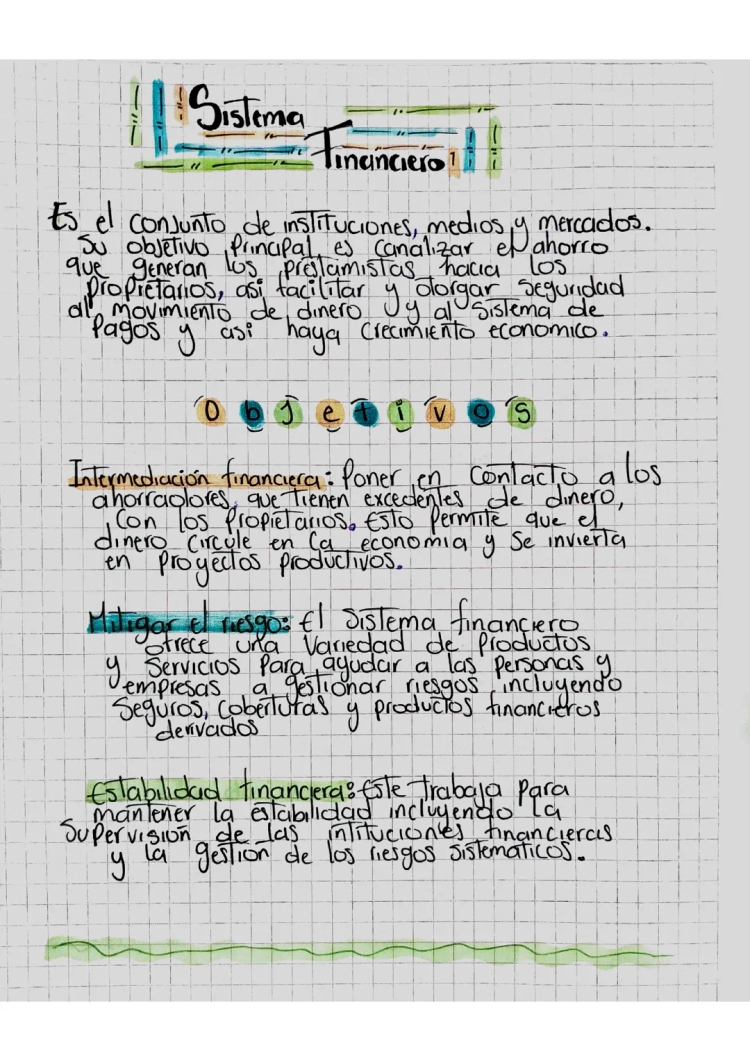 Sistema
Financiero
Es el conjunto de instituciones, medios y mercados.
Su objetivo Principal es canalizar el ahorro
que generan los prestamistas hacia los
Propietarios, asi facilitar y otorgar seguridad
al movimiento de dinero y al sistema de
Pagos y asi haya crecimiento economico.
Objetivos
Intermediación financiera: Poner en contacto a los
ahorradores, que tienen excedentes de dinero,
Con los Propietarios. Esto Permite que el
dinero circule en la economia y se invierta
en Proyectos Productivos.
Mitigar el riesgo: El Sistema financiero
ofrece una Variedad de Productos
y Servicios Para ayudar a las Personas y
empresas a gestionar riesgos incluyendo
Seguros, Coberturas y productos financieros
derivados
Estabilidad financiera: Este Trabaja Para
mantener la estabilidad incluyendo la
Supervisión de las intituciones financieras
y la gestión de los riesgos sistematicos.